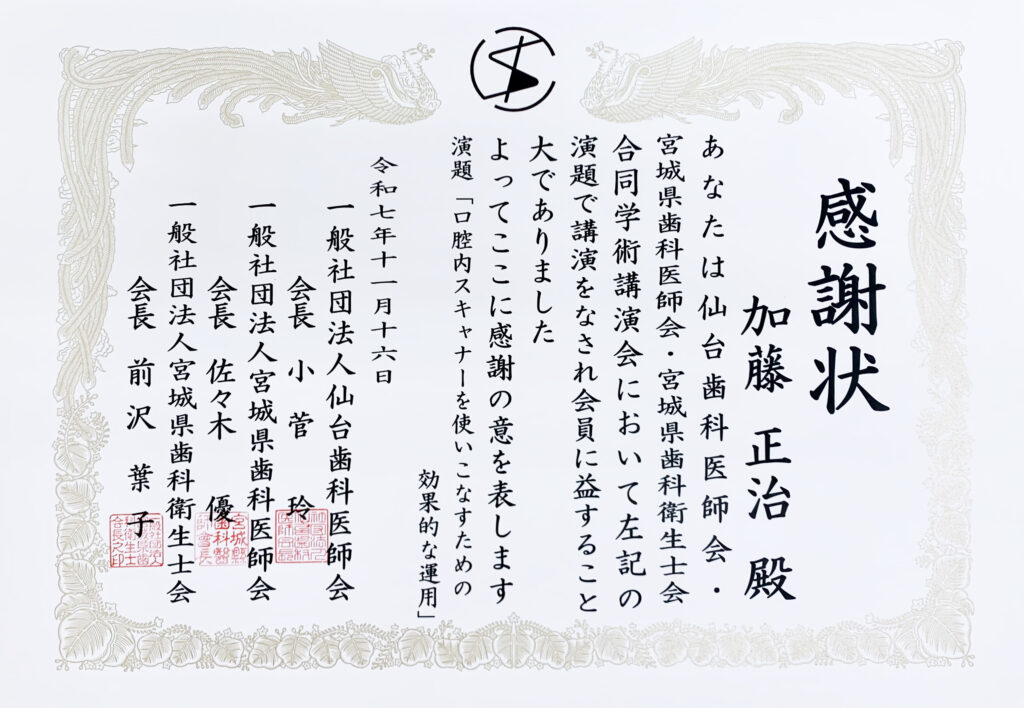 感謝状
加藤 正治 殿
あなたは仙台歯科医師会・
宮城県歯科医師会・宮城県歯科衛生士会
合同学術講演会において左記の
演題で講演をなされ会員に益すること
大でありました
よってここに感謝の意を表します
演題「口腔内スキャナーを使いこなすための
効果的な運用」
令和七年十一月十六日
一般社団法人仙台歯科医師会
会長 小菅 玲
一般社団法人宮城県歯科医師会
会長 佐々木 優
一般社団法人宮城県歯科衛生士会
会長 前沢 葉子